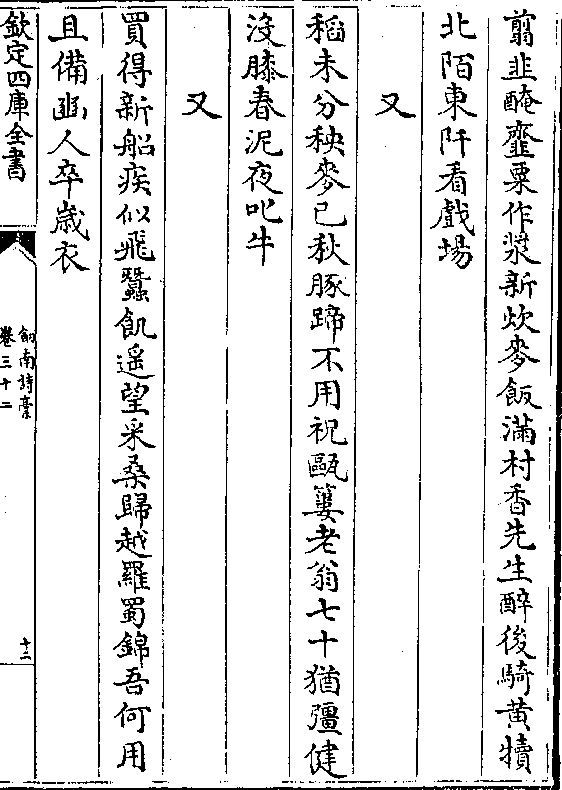 翦韭醃虀粟作漿新炊麥飯滿村香先生醉後騎黃犢
北陌東阡看戲場
又
稻未分秧麥已秋豚蹄不用祝甌簍老翁七十猶彊健
沒膝春泥夜叱牛
又
買得新船疾似飛蠶飢遥望采桑歸越羅蜀錦吾何用
且備幽人卒歲衣
欽定四庫全書
劒南詩藁
卷三十二
十二